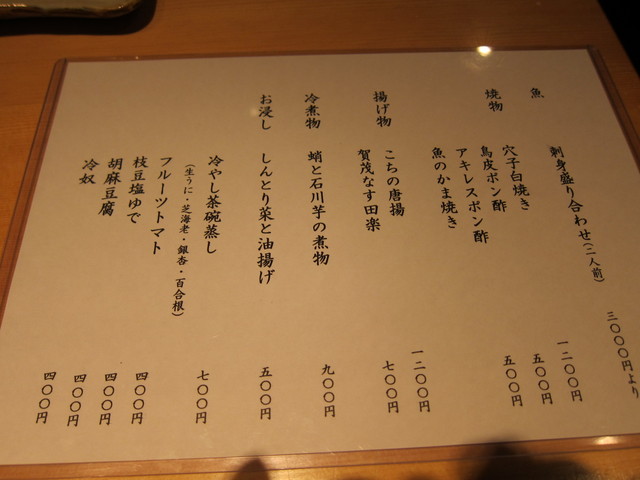 魚
刺身盛り合わせ(二人前) 三〇〇〇円より
焼物
穴子白焼き 一二〇〇円
鳥皮ポン酢 五〇〇円
アキレスポン酢 五〇〇円
魚のかま焼き
揚げ物
こちの唐揚 一二〇〇円
賀茂なす田楽 七〇〇円
冷煮物
蛸と石川芋の煮物 九〇〇円
お浸し
しんとり菜と油揚げ 五〇〇円
冷やし茶碗蒸し 七〇〇円
(生うに・芝海老・銀杏・百合根)
フルーツトマト 四〇〇円
枝豆塩ゆで 四〇〇円
胡麻豆腐 四〇〇円
冷奴 四〇〇円